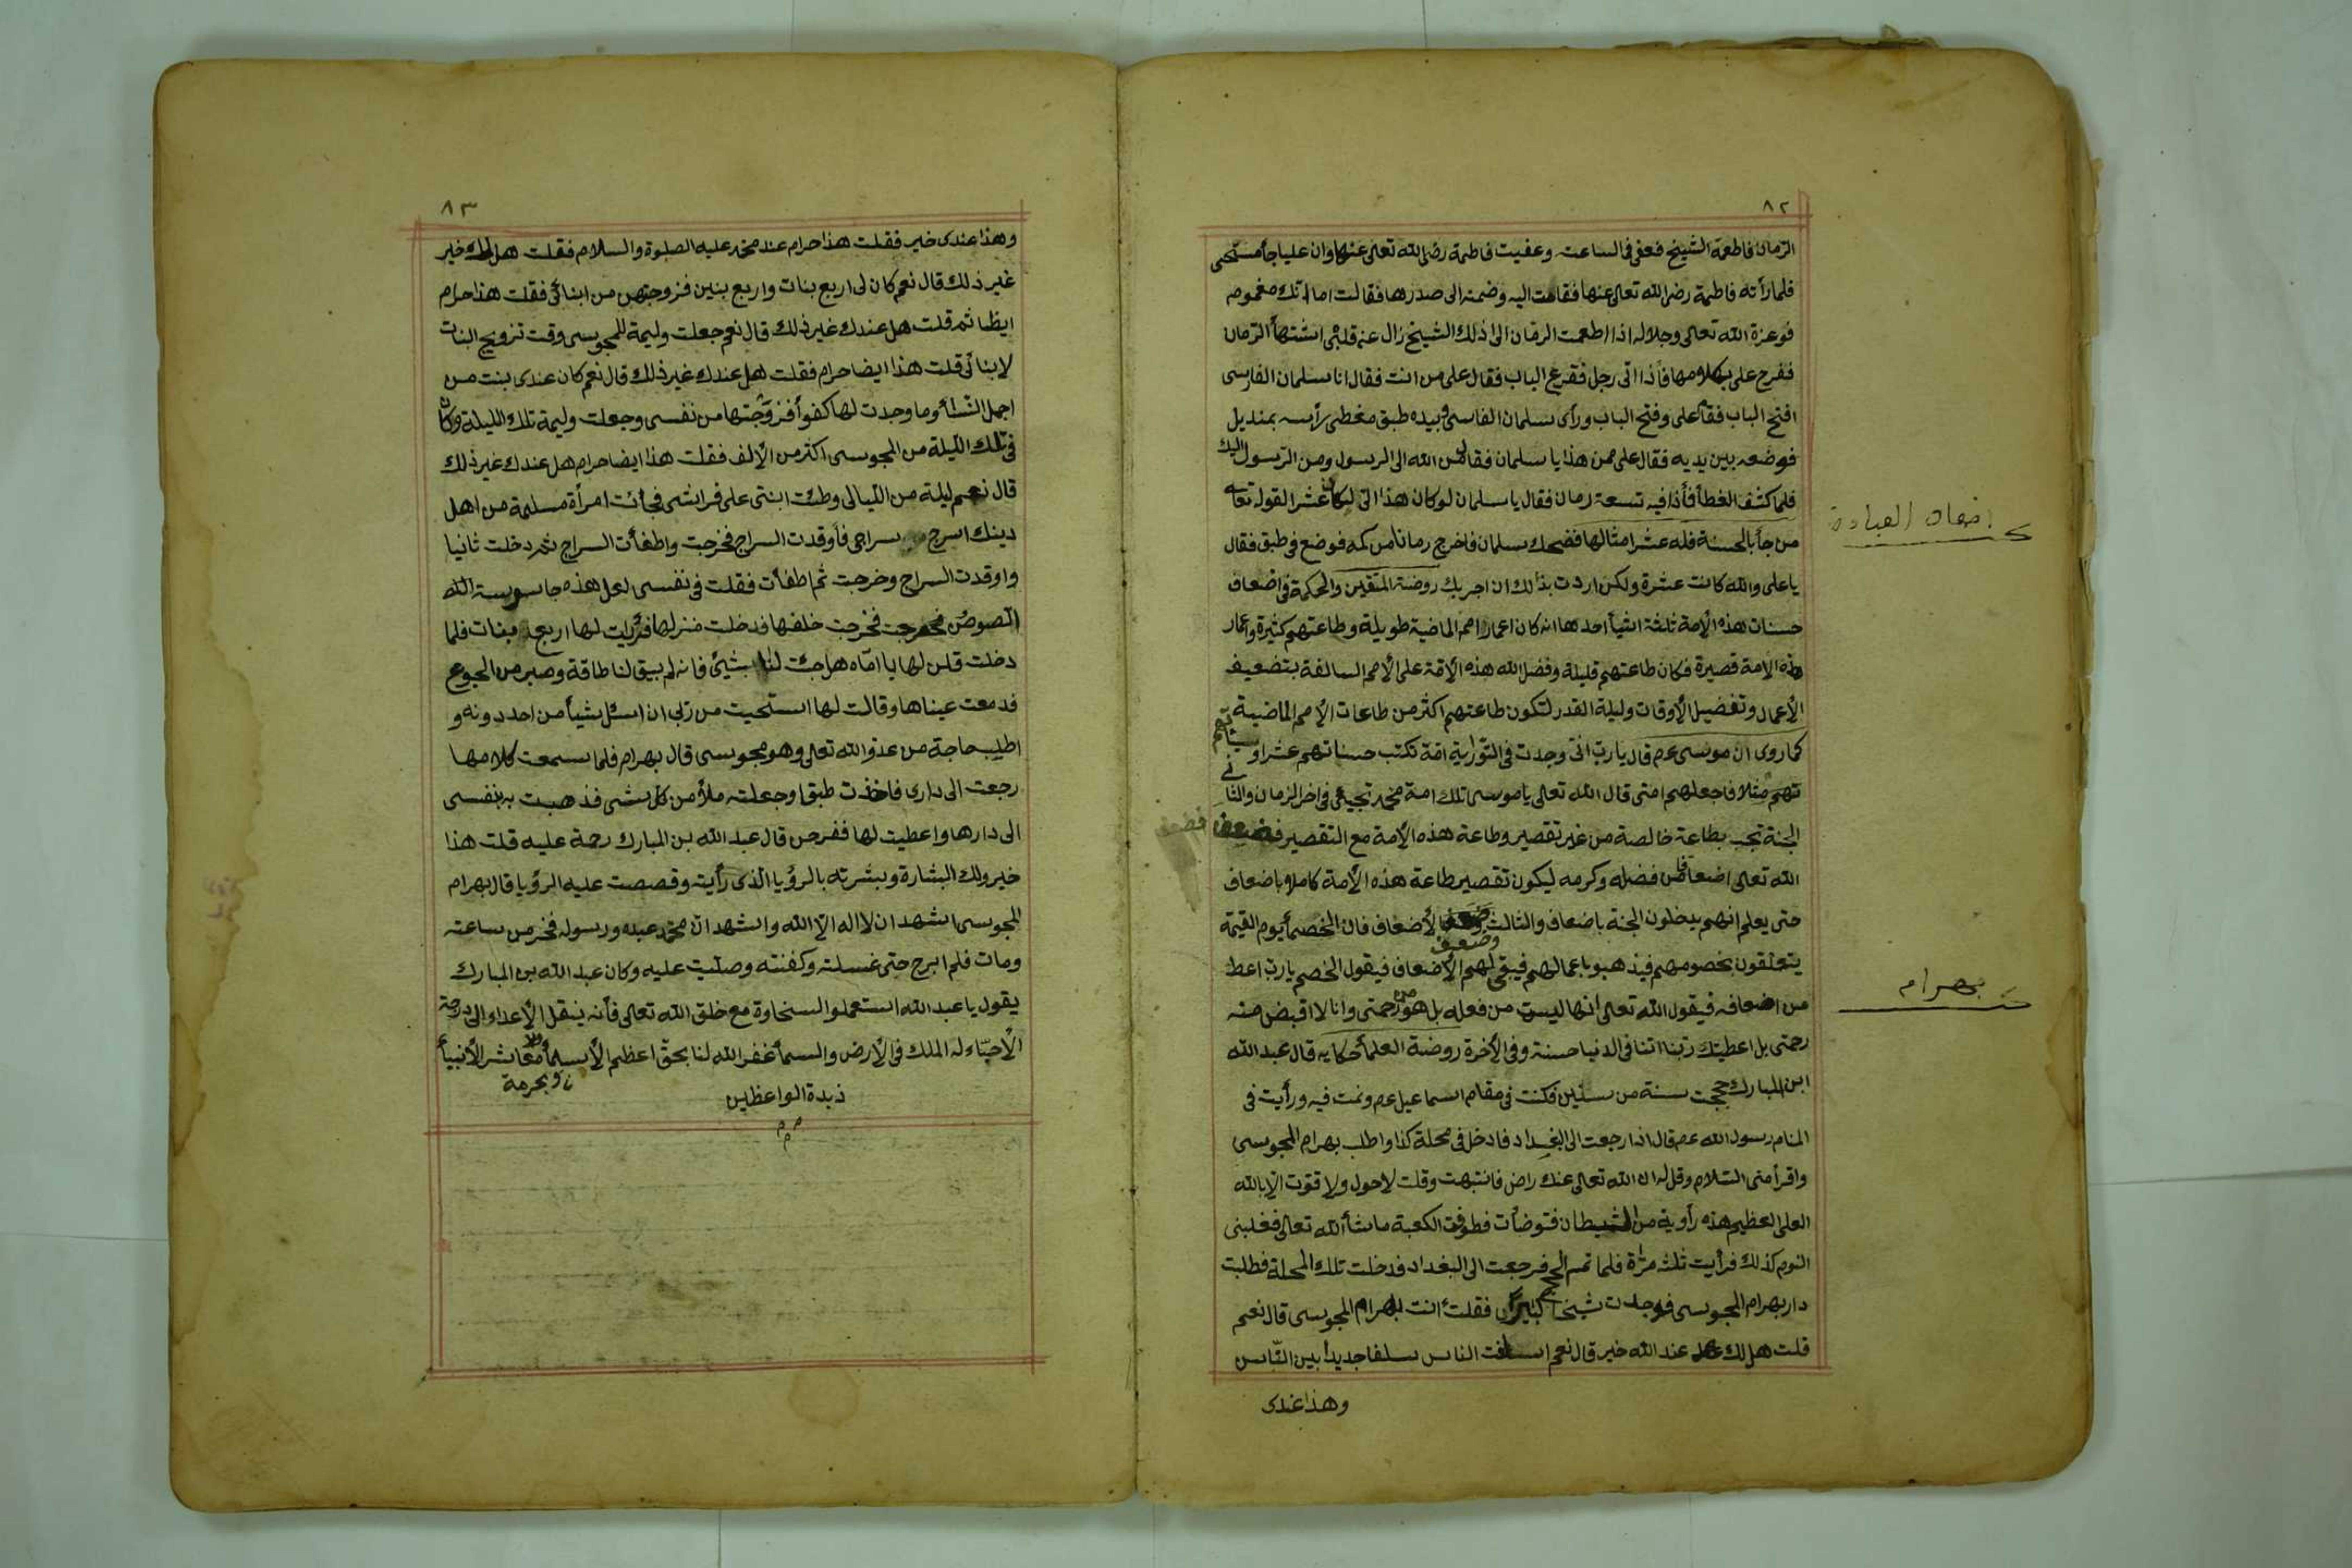 ٨٢
الرمان فاطعمة الشيخ فعفى فى الساعت وعفيت فاطمة رضى الله تعالى عنها وان عليا جأ مستحى
فلما رأته فاطمة رضى الله تعالى عنها فقامت اليه وضمته الى صدرها فقالت اما انك مغموم
فوعزة الله تعالى وجلاله اذا اطعمت الرمان الى ذلك الشيخ زال عن قلبى اشتهأ الرمان
ففرح على بكلامها فأذا اتى رجل فقرع الباب فقال على من انت فقال انا سلمان الفارسى
افتح الباب فقام على وفتح الباب ورأى سلمان الفاسى وبيده طبق مغطى رأسه بمنديل
فوضعه بين يديه فقال على ممن هذا يا سلمان فقال من الله الى الرسول ومن الرسول اليك
فلما كشف الغطأ فأذا فيه تسعة رمان فقال يا سلمان لو كان هذا الى لكان عشر القوله تعالى
من جأ بالحسنة فله عشر امثالها فضحك سلمان فاخرج رمانا من كمه فوضع فى طبق فقال
يا على والله كانت عشرة ولكن اردت بذلك ان اجربك روضة المتقين والحكمة فى اضعاف
حسنات هذه الأمة ثلثة اشيأ احدها انه كان اعمار امم الماضية طويلة وطاعتهم كثيرة واعمار
هذه الامة قصيرة فكان طاعتهم قليلة وفضل الله هذه الأمة على الأمم السالفة بتضعيف
الأعمال وتفضيل الأوقات وليلة القدر لتكون طاعتهم اكثر من طاعات الأمم الماضية
كما روى ان موسى عم قال يا رب انى وجدت فى التورية امة تكتب حسناتهم عشرا و سيئاتهم
مثلا فاجعلهم امتى قال الله تعالى يا موسى تلك امة محمد تجيئ فى اخر الزمان والثانى
الجنة تجب بطاعة خالصة من غير تقصير وطاعة هذه الأمة مع التقصير فضعف
الله تعالى اضعافا من فضله وكرمه ليكون تقصير طاعة هذه الأمة كاملا باضعاف
حتى يعلم انهم يدخلون الجنة باضعاف والثالث وضعف الأضعاف فان الخصمأ يوم القيمة
يتعلقون بخصومهم فيذهبو باعمالهم فيبقى لهم الأضعاف فيقول الخصم يا رب اعط
من اضعافه فيقول الله تعالى انها ليست من فعله بل هو من رحمتى وانا لا اقبض منه
رحمتى بل اعطيتك ربنا اتنا فى الدنيا حسنة وفى الأخرة روضة العلمأ حكايه قال عبد الله
ابن المبارك حججت سنة من سنين فكنت فى مقام اسماعيل عم ونمت فيه ورأيت فى
المنام رسول الله عم قال اذا رجعت الى البغداد فادخل فى محلة كذا واطلب بهرام المجوسى
واقرأ منى السلام وقل له ان الله تعالى عنك راض فانتبهت وقلت لاحول ولا قوت الا بالله
العلى العظيم هذه رأوية من الشيطان فتوضأت فطوفت الكعبة ماشأ الله تعالى فغلبنى
النوم كذلك فرأيت ثلث مرة فلما تم الحج فرجعت الى البغداد فدخلت تلك المحلة فطلبت
دار بهرام المجوسى فوجدت شيخا كبيرا فقلت أانت بهرام المجوسى قال نعم
قلت هل لك عند الله خير قال نعم اسلفت الناس سلفا جديدا بين الناس
وهذا عندى
اضعاف العبادة
بهرام
٨٣
وهذا عندى خير فقلت هذا حرام عند محمد عليه الصلوة والسلام فقلت هل لك خير
غير ذلك قال نعم كان لى اربع بنات واربع بنين فزوجتهن من ابنائى فقلت هذا حرام
ايظا ثم قلت هل عندك غير ذلك قال نعم جعلت وليمة للمجوسى وقت تزويج البنات
لابنائى قلت هذا ايضا حرام فقلت هل عندك غير ذلك قال نعم كان عندى بنت من
اجمل النسأ وما وجدت لها كفوا فزوجتها من نفسى وجعلت وليمة تلك الليلة وكان
فى تلك الليلة من المجوسى اكثر من الألف فقلت هذا ايضا حرام هل عندك غير ذلك
قال نعم ليلة من الليالى وطئت ابنتى على فراشى فجأت امرأة مسلمة من اهل
دينك اسرج سراجى فأوقدت السراج فخرجت واطفأت السراج ثم دخلت ثانيا
واوقدت السراج وخرجت ثم اطفأت فقلت فى نفسى لعل هذه جاسوسة
اللصوص فخرجت خلفها فدخلت منزلها فرأيت لها اربع بنات فلما
دخلت قلن لها يا اماه هل جئت لنا بشيئ فانه لم يبق لنا طاقة وصبر من الجوع
فدمعت عيناها وقالت لها استحيت من ربى ان اسئل شيأ من احد دونه و
اطلب حاجة من عدو الله تعالى وهو مجوسى قال بهرام فلما سمعت كلامها
رجعت الى دارى فاخذت طبقا وجعلته ملأ من كل شى فذهبت به بنفسى
الى دارها واعطيت لها ففرحن قال عبد الله بن المبارك رحمة عليه قلت هذا
خير ولك البشارة وبشرته بالرؤيا الذى رأيت وقصصت عليه الرؤيا قال بهرام
المجوسى اشهد ان لا اله الا الله واشهد ان محمد عبده ورسوله فخر من ساعته
ومات فلم ابرح حتى غسلته وكفنته وصليت عليه وكان عبد الله بن المبارك
يقول يا عبد الله استعملو السخاوة مع خلق الله تعالى فأنه ينقل الأعداء الى درجة
الأحباء له الملك فى الأرض والسمأ غفر الله لنا بحق اعظم الأسمأ معاشر الأنبيأ
وبحرمة
زبدة الواعظين
م م م